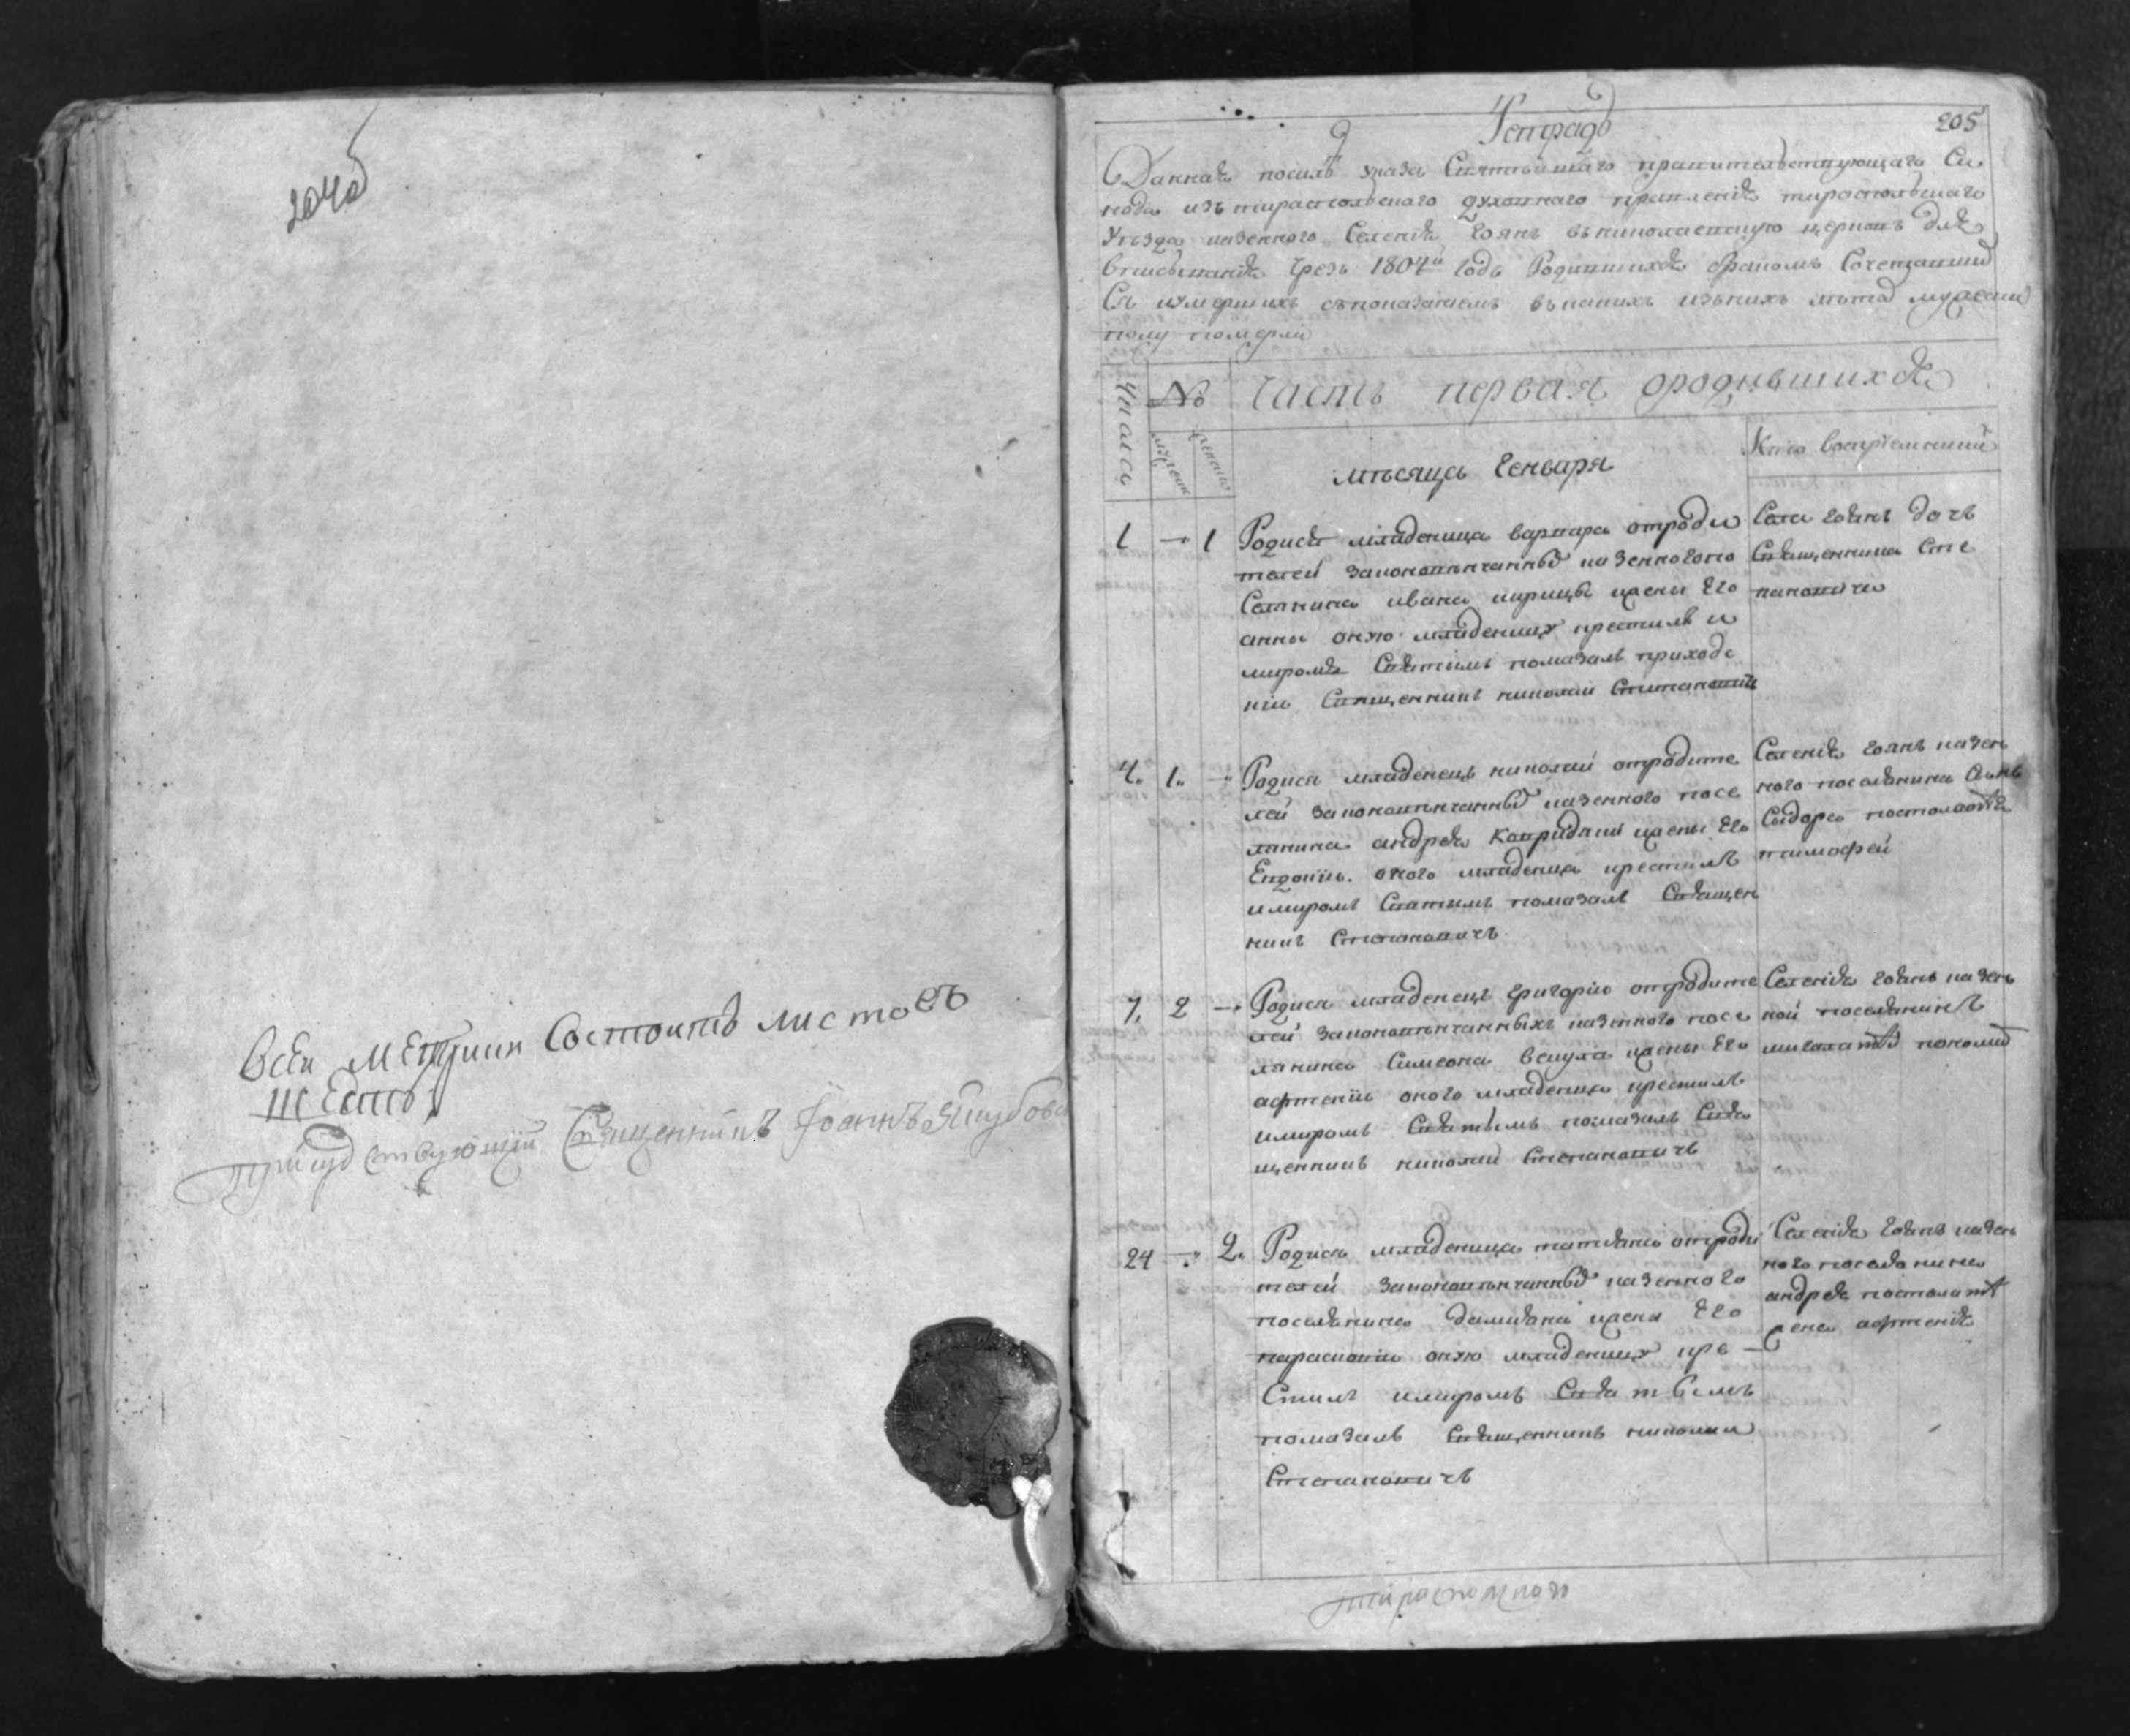 204об
Всеи Метрики Состоитъ листовъ
шесть
присудствующїй Священникъ Їоаннъ Якубовс
205
Тетрадь
Данная посилѣ указа Святѣйшаго правительствующаго Си
нода изъ тираспольскаго духовнаго правленія тираспольскаго
Уѣзда казенного Селенія гоянъ въ николаевскую церковь для
вписыванія чрезъ 1804й годъ Родившихся бракомъ Сочетавши
Съ иумершихъ съпоказаниемъ въ какихъ изънихъ лѣта
кому померли
Числа
№
Часть первая ородившихся
мужеска
женска
мѣсяца Генваря
Кто воспріемники
1 — 1 Родися младеница варвара отроди
телей законовѣнчанны казенногопо
Селянина ивана жены Его
анны оную младеницу крестилъ и
миромъ Святымъ помазалъ приход
нїи Священникъ николай Степанович
Села гоянъ дочъ
Священника Сте
пановича
4. 1. — Родися младенецъ николай отродите
лей законовѣнчанны казенного посе
лянина андрея жены Его
Евдокїи. оного младенца крестилъ
имиромъ Святымъ помазалъ Священ
никъ Степановичъ
Селенія гоянъ казен
ного поселянина Сынъ
Сидора
тимофей
7. 2 — Родися младенецъ григорїю отродите
лей законовѣнчанныхъ казенного посе
лянина Симеона жены Его
афтенїи оного младенца крестилъ
имиромъ Святымъ помазалъ Свя
щенникъ николай Степановичъ
Селенія гоянъ казен
ной поселянинъ
24 — 2. Родися младеница татияна отроди
телей законовѣнчанны казенного
поселянина дамияна жены Его
парасковїи оную младеницу кре —
Стилъ имиромъ Святымъ
помазалъ Священникъ николай
Степановичъ
Селенія гоянъ казен
ного поселянина
андрея
жена афтенія
тираспольского